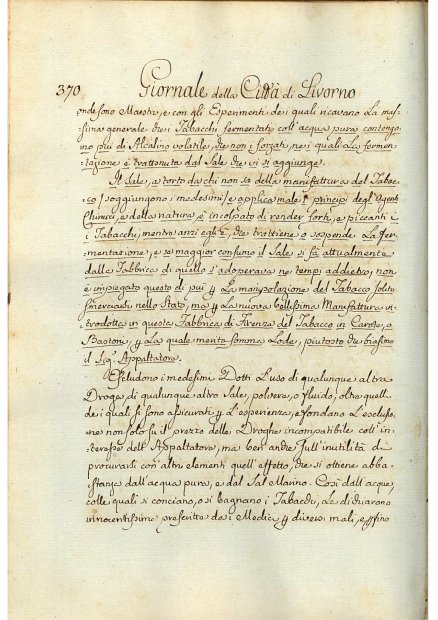 370 Giornale della Città di Livorno
onde sono Maestri, e con gli Esperimenti de i quali ricavano la mas-
sima generale che i Tabacchi fermentati coll' acqua pura contengo
no più di Alcalino volatile, che non i forzati, ne i quali la fermen-
tazione è trattenuta dal Sale che vi si aggiunge.
Il Sale, a torto da chi non sa della manifattura del Tabac-
co / soggiungono i medesimi / e applica male i principj degl' Agenti
Chimici, e della natura, è incolpato di render forti, e piccanti i
i Tabacchi, mentre anzi egli è, che trattiene o sospende la fer-
mentazione, e se maggior consumo il Sale si fà attualmente
dalla Fabbrica di quello s' adoperava ne tempi addietro, non
è impiegato questo di più p la manipolazione del Tabacco solito
smerciarsi nello Stato, ma p la nuova bellissima Manifattura in-
trodotta in questa Fabbrica di Firenze del Tabacco in Carote, a
Bastoni, p la quale merita somma lode, piutosto che biasimo
il Sig. Appaltatore.
Escludono i medesimi Dotti l' uso di qualunque altra
Droga, di qualunque altro Sale, polvere, o fluido, oltre quelli
de i quali si sono assicurati p l' esperienza, e fondano l' esclusio-
ne non solo su il prezzo delle Droghe incompatibile coll' in-
teresse dell' Appaltatore, ma ben anche sull' inutilità di
procurarsi con altri elementi quell' effetto, che si ottiene abba-
stanza dall' acqua pura, e dal Sal Marino. Così dall' acque,
colle quali si conciano, o si bagnano i Tabacchi, le dichiarono
innocentissime prescritte da i Medici p diversi mali, e sino